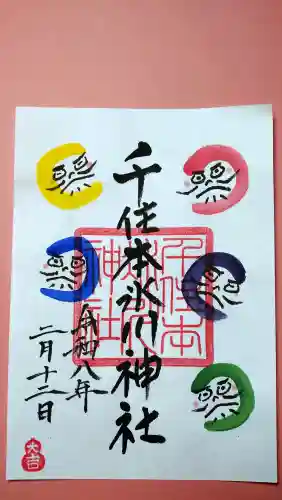 千住本氷川神社
令和八年
二月十二日
千住本
氷川
神社
大吉